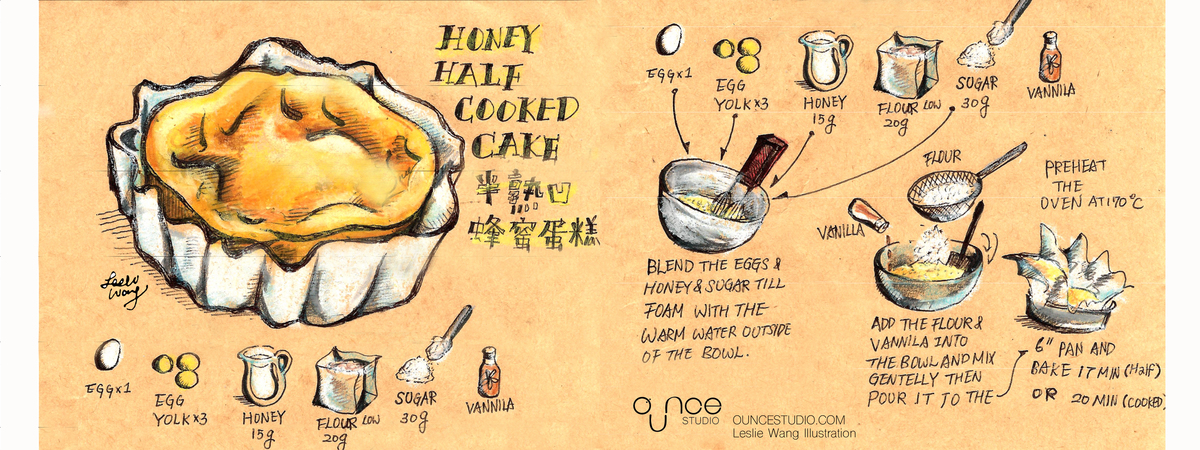 HONEY
HALF
COOKED
CAKE
半熟凹
蜂蜜蛋糕
Leslie
Wang
EGG×1
EGG
YOLK×3
HONEY
15g
FLOUR LOW
20g
SUGAR
30g
VANNILA
EGG×1
EGG
YOLK×3
HONEY
15g
FLOUR LOW
20g
SUGAR
30g
VANNILA
BLEND THE EGGS &
HONEY & SUGAR TILL
FOAM WITH THE
WARM WATER OUTSIDE
OF THE BOWL.
FLOUR
VANILLA
ADD THE FLOUR &
VANNILA INTO
THE BOWL AND MIX
GENTELLY THEN
POUR IT TO THE
PREHEAT
THE
OVEN AT 170°C
6" PAN AND
BAKE 17 MIN (Half)
OR 20 MIN (COOKED)
ounce
STUDIO
OUNCESTUDIO.COM
Leslie Wang Illustration